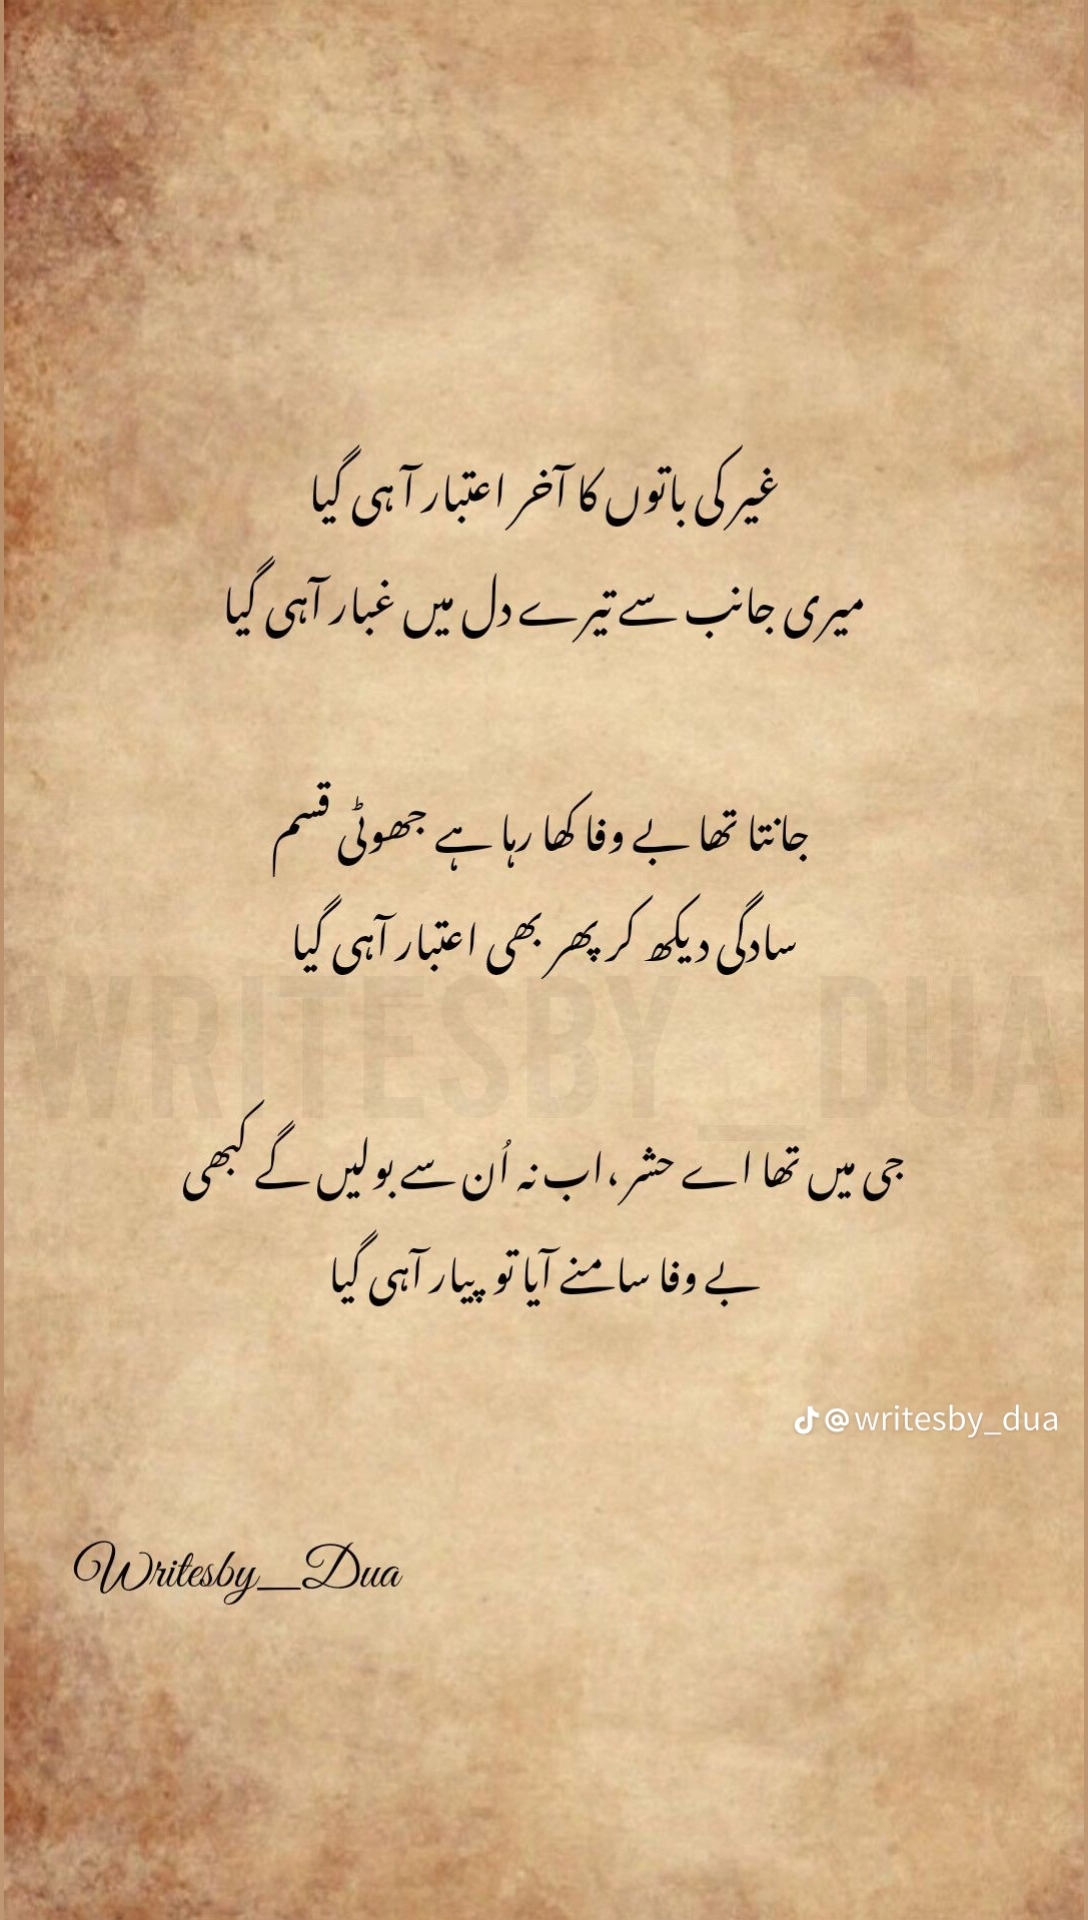 غیر کی باتوں کا آخر اعتبار آ ہی گیا
میری جانب سے تیرے دل میں غبار آ ہی گیا
جانتا تھا بے وفا کھا رہا ہے جھوٹی قسم
سادگی دیکھ کر پھر بھی اعتبار آ ہی گیا
WRITESBY_DUA
جی میں تھا اے حشر، اب نہ اُن سے بولیں گے کبھی
بے وفا سامنے آیا تو پیار آ ہی گیا
@writesby_dua
Writesby_Dua